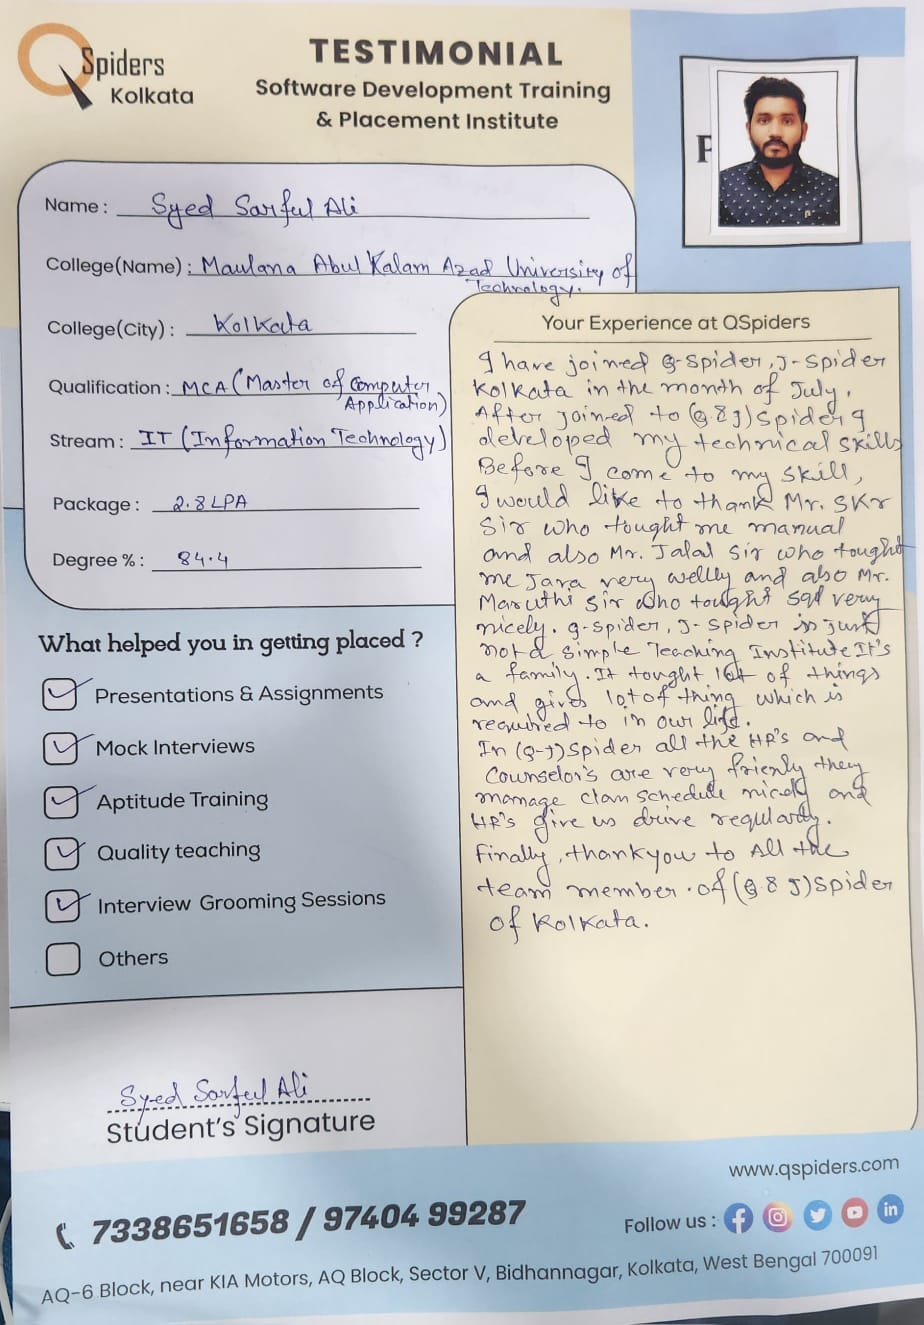 QSpiders
Kolkata
TESTIMONIAL
Software Development Training
& Placement Institute
P
Name : Syed Sarful Ali
College(Name) : Maulana Abul Kalam Azad University of
Technology.
College(City) : Kolkata
Qualification : MCA (Master of Computer
Application)
Stream : IT (Information Technology)
Package : 2.8 LPA
Degree % : 84.4
What helped you in getting placed ?
Presentations & Assignments
Mock Interviews
Aptitude Training
Quality teaching
Interview Grooming Sessions
Others
Syed Sarful Ali
Student's Signature
Your Experience at QSpiders
I have joined Q-Spider, J-Spider
Kolkata in the month of July.
After joined to (Q & J) Spider I
developed my technical skills
Before I come to my skill,
I would like to thank Mr. SKR
Sir who tought me manual
and also Mr. Jalal Sir who tought
me Java very wellly and also Mr.
Maruthi Sir who tought sql very
nicely. Q-spider, J-spider is just
not a simple Teaching Institute It's
a family. It tought lot of things
and gives lot of thing which is
required to in our life.
In (Q-J) Spider all the HR's and
Counselor's are very frienly they
manage class schedule nicely and
HR's give us drive regularly.
Finally, thankyou to All the
team member of (Q & J) Spider
of Kolkata.
www.qspiders.com
7338651658 / 97404 99287
Follow us :
AQ-6 Block, near KIA Motors, AQ Block, Sector V, Bidhannagar, Kolkata, West Bengal 700091